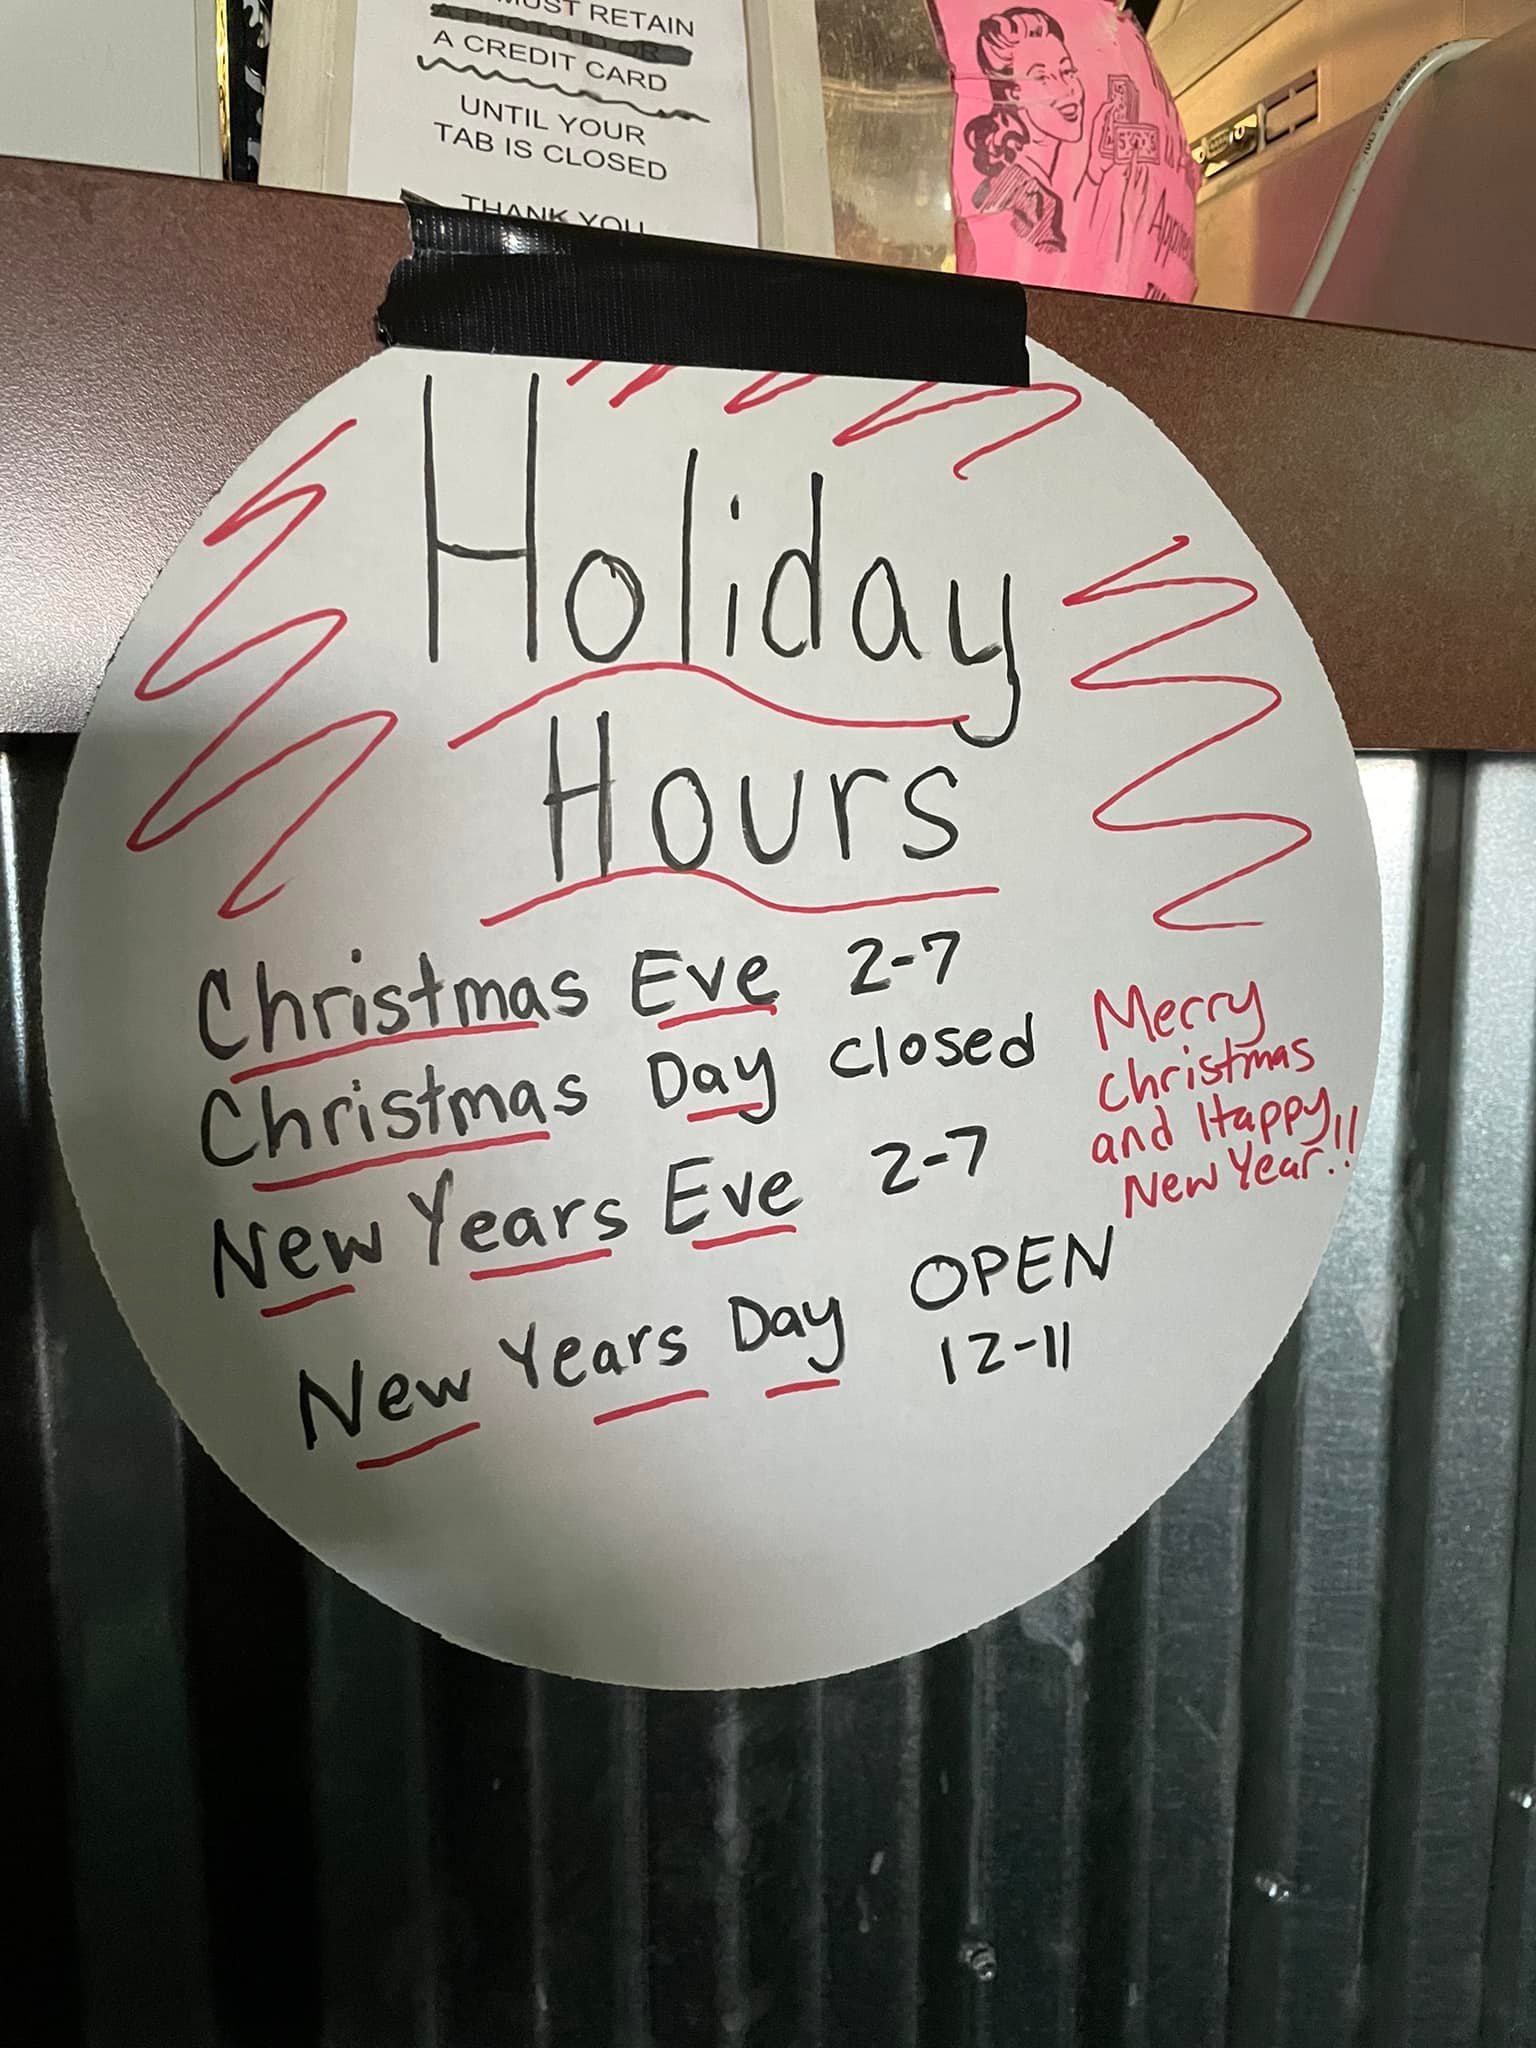 MUST RETAIN
A CREDIT CARD
UNTIL YOUR
TAB IS CLOSED
THANK YOU
Holiday
Hours
Christmas Eve 2-7
Christmas Day closed
New Years Eve 2-7
New Years Day OPEN
12-11
Merry
christmas
and Happy
New Year!!